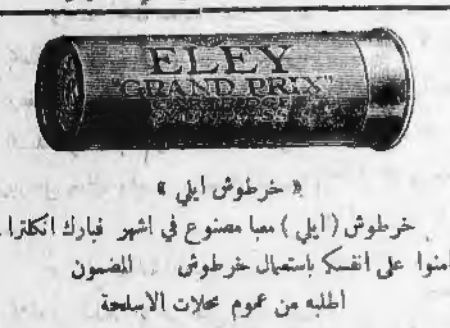 ELEY
"GRAND PRIX"
CARTRIDGE
« خرطوش ايلي »
خرطوش ( ايلي ) معبا مصنوع في اشهر فبارك انكلترا .
امنوا على انفسكم باستعمال خرطوش المضمون
اطلبه من عموم محلات الاسلحة